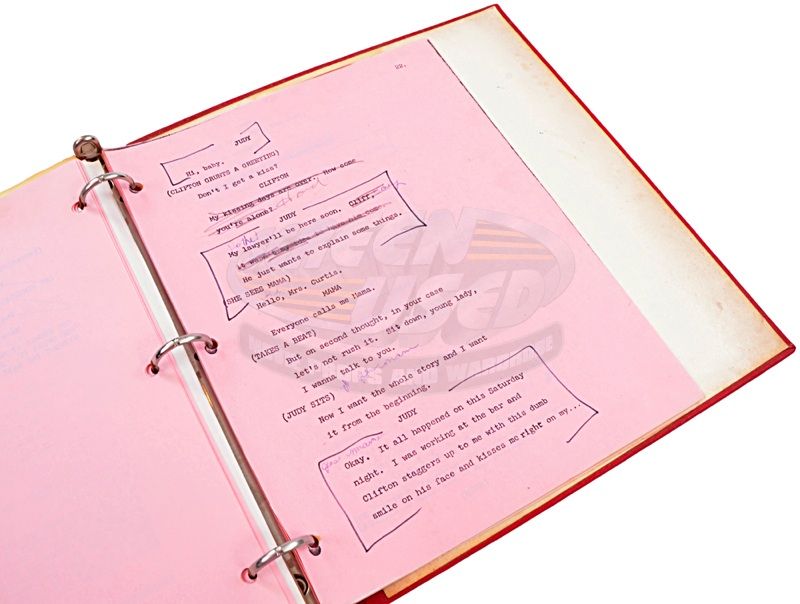 22.
JUDY
Hi, baby.
(CLIPTON GRUNTS A GREETING)
Don't I get a kiss?
CLIPTON
My kissing days are over. How come
you're alone?
JUDY
My lawyer'll be here soon. Cliff,
it wasn't my idea to have him come.
He just wants to explain some things.
(SHE SEES MAMA)
Hello, Mrs. Curtis.
MAMA
Everyone calls me Mama.
(TAKES A BEAT)
But on second thought, in your case
let's not rush it. Sit down, young lady,
I wanna talk to you.
(JUDY SITS)
Now I want the whole story and I want
it from the beginning.
JUDY
yes mam
Okay. It all happened on this Saturday
night. I was working at the bar and
Clifton staggers up to me with this dumb
smile on his face and kisses me right on my....
SCREEN
USED